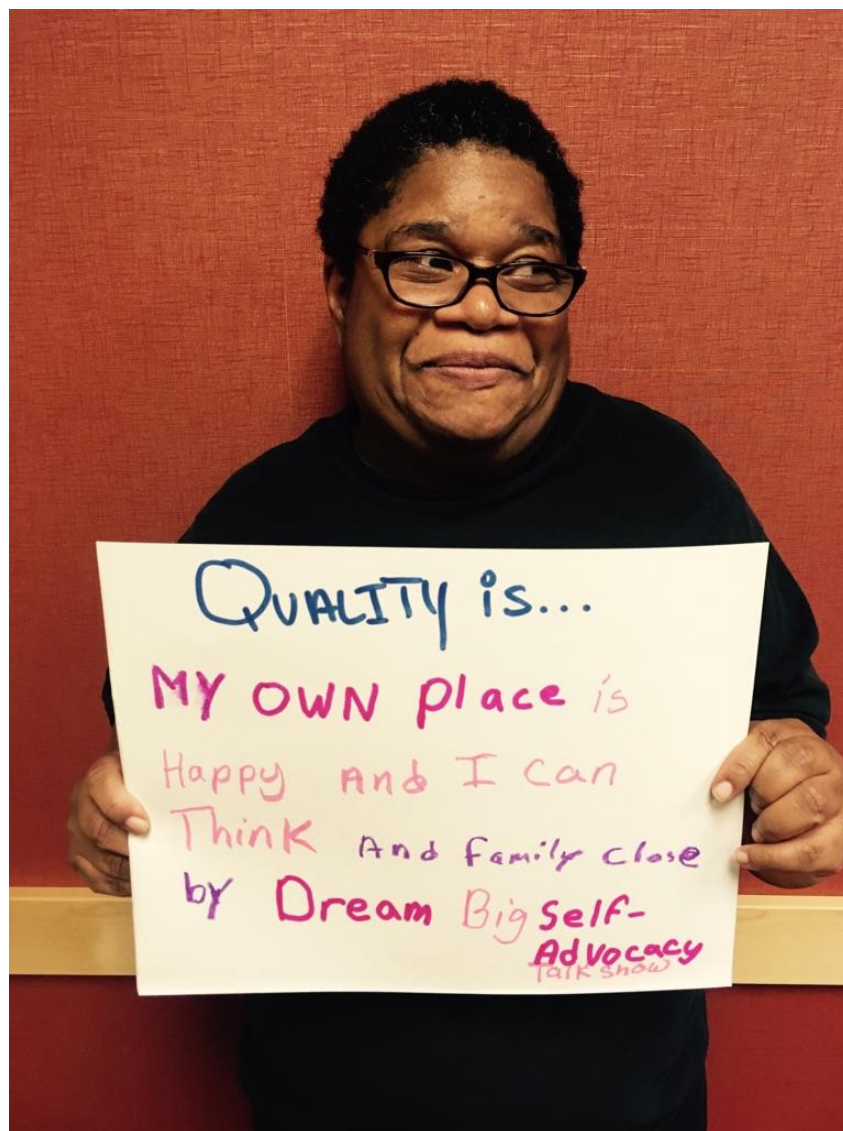 QUALITY is...
MY OWN place is
Happy And I Can
Think And family close
by Dream Big Self-
Advocacy
Talk show